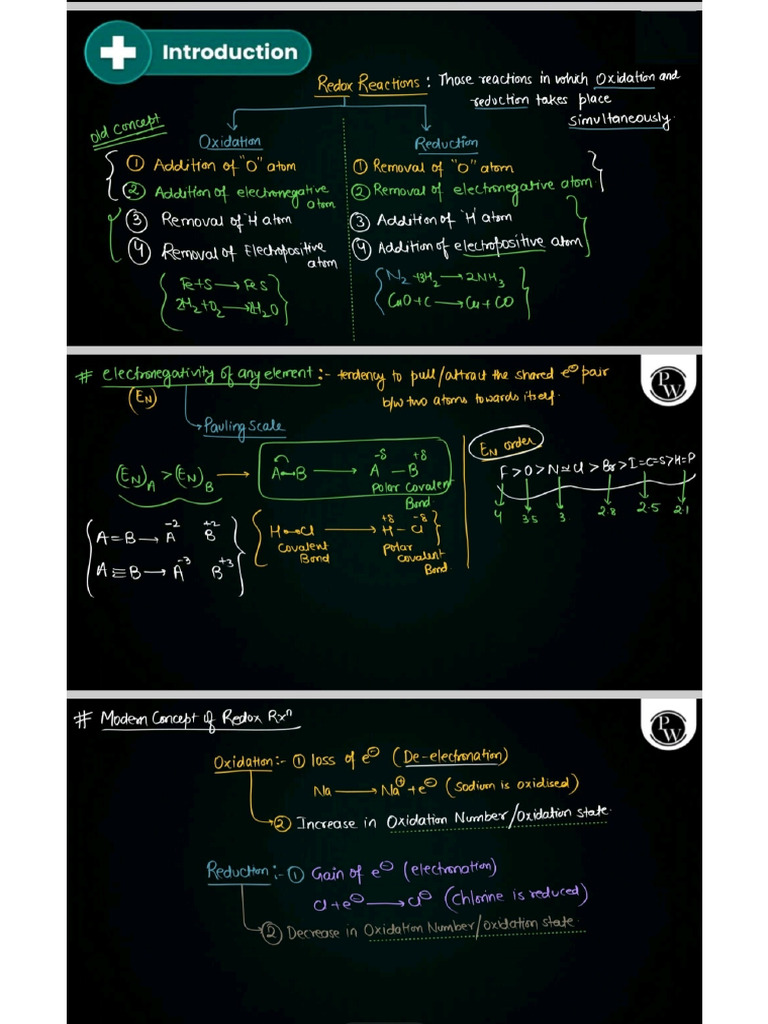 Introduction
Redox Reactions : Those reactions in which Oxidation and
reduction takes place
simultaneously.
Old Concept
Oxidation
① Addition of "O" atom
② Addition of electronegative
atom
③ Removal of 'H' atom
④ Removal of Electropositive
atom
Fe+S → FeS
2H₂+O₂ → 2H₂O
Reduction
① Removal of "O" atom
② Removal of electronegative atom.
③ Addition of 'H' atom
④ Addition of electropositive atom
N₂+3H₂ → 2NH₃
CuO+C → Cu+CO
# electronegativity of any element :- tendency to pull/attract the shared e⊖ pair
(EN)
b/w two atoms towards itself.
Pauling scale
(EN)A > (EN)B →
A—B → A^-δ — B^+δ
Polar Covalent
Bond
A=B → A^-2 B^+2
A≡B → A^-3 B^+3
H—Cl → H^+δ — Cl^-δ
Covalent
Bond
Polar
covalent
Bond.
EN order
F>O>N≃Cl>Br>I=C=S>H=P
4 3.5 3 2.8 2.5 2.1
PW
# Modern Concept of Redox Rxⁿ
Oxidation :- ① loss of e⊖ (De-electronation)
Na → Na⊕+e⊖ (Sodium is oxidised)
② Increase in Oxidation Number/Oxidation state.
Reduction :- ① Gain of e⊖ (electronation)
Cl+e⊖ → Cl⊖ (Chlorine is reduced)
② Decrease in Oxidation Number/oxidation state.
PW